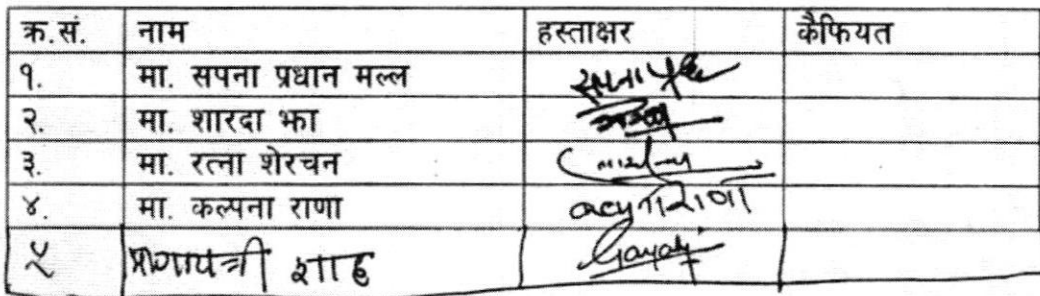 क्र.सं. नाम हस्ताक्षर कैफियत
१. मा. सपना प्रधान मल्ल
२. मा. शारदा झा
३. मा. रत्ना शेरचन
४. मा. कल्पना राणा
५ गायत्री शाह Gayatri